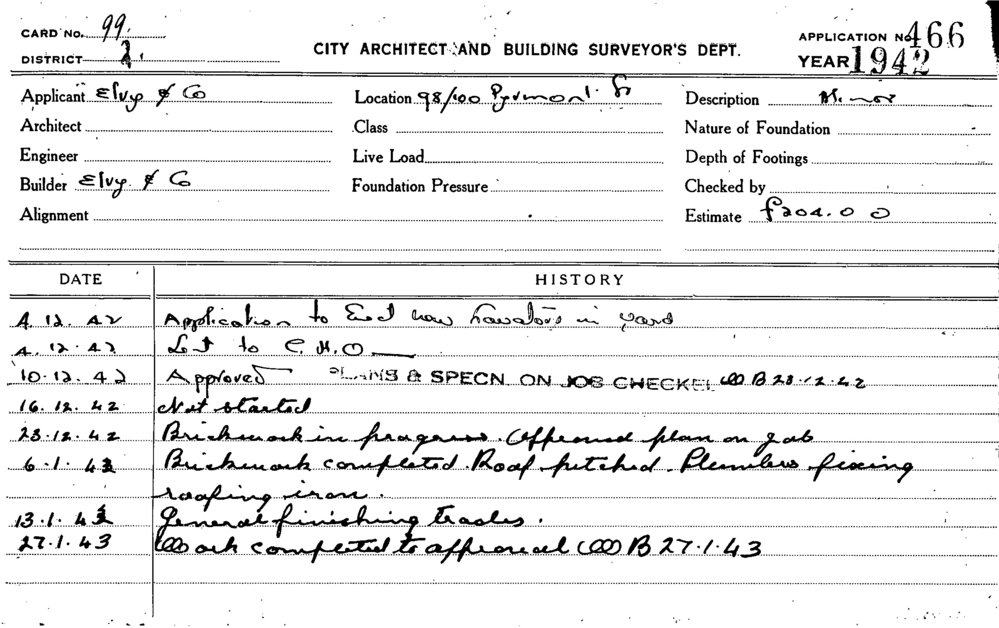 CARD No. 99.
DISTRICT 2.
CITY ARCHITECT AND BUILDING SURVEYOR'S DEPT.
APPLICATION No. 466
YEAR 1942
Applicant Elvy & Co
Location 98/100 Pyrmont St
Description Minor
Architect
Class
Nature of Foundation
Engineer
Live Load
Depth of Footings
Builder Elvy & Co
Foundation Pressure
Checked by
Alignment
Estimate £204.0 0
DATE HISTORY
4. 12. 42 Application to Erect new Lavatory in yard
4. 12. 42 to C.H.O
10.12.42 Approved PLANS & SPECN. ON JOB CHECKED B 23.12.42
16. 12. 42 Not started
23.12.42 Brickwork in progress. Approved plan on job
6.1.43 Brickwork completed. Roof pitched. Plumbers fixing
roofing iron.
13.1.43 General finishing trades.
27.1.43 Work completed to approval B 27.1.43